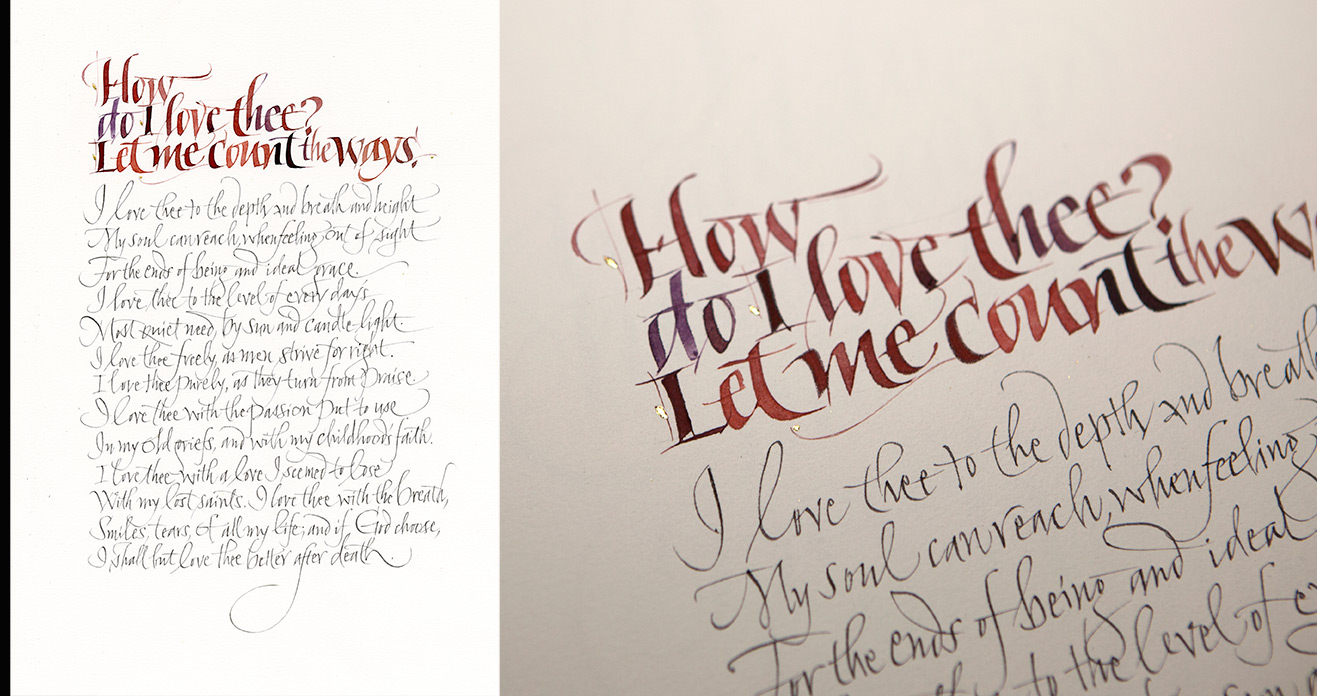 How
do I love thee?
Let me count the ways.
I love thee to the depth and breath and height
My soul can reach, when feeling out of sight
For the ends of being and ideal grace.
I love thee to the level of every days
Most quiet need, by sun and candle light.
I love thee freely, as men strive for right.
I love thee purely, as they turn from Praise
I love thee with the passion put to use
In my old griefs, and with my childhoods faith.
I love thee with a love I seemed to lose
With my lost saints. I love thee with the breath,
Smiles, tears, of all my life; and if God choose,
I shall but love thee better after death.
How
do I love thee?
Let me count the w
I love thee to the depth and breat
My soul can reach, when feeling
For the ends of being and ideal
to the level of e